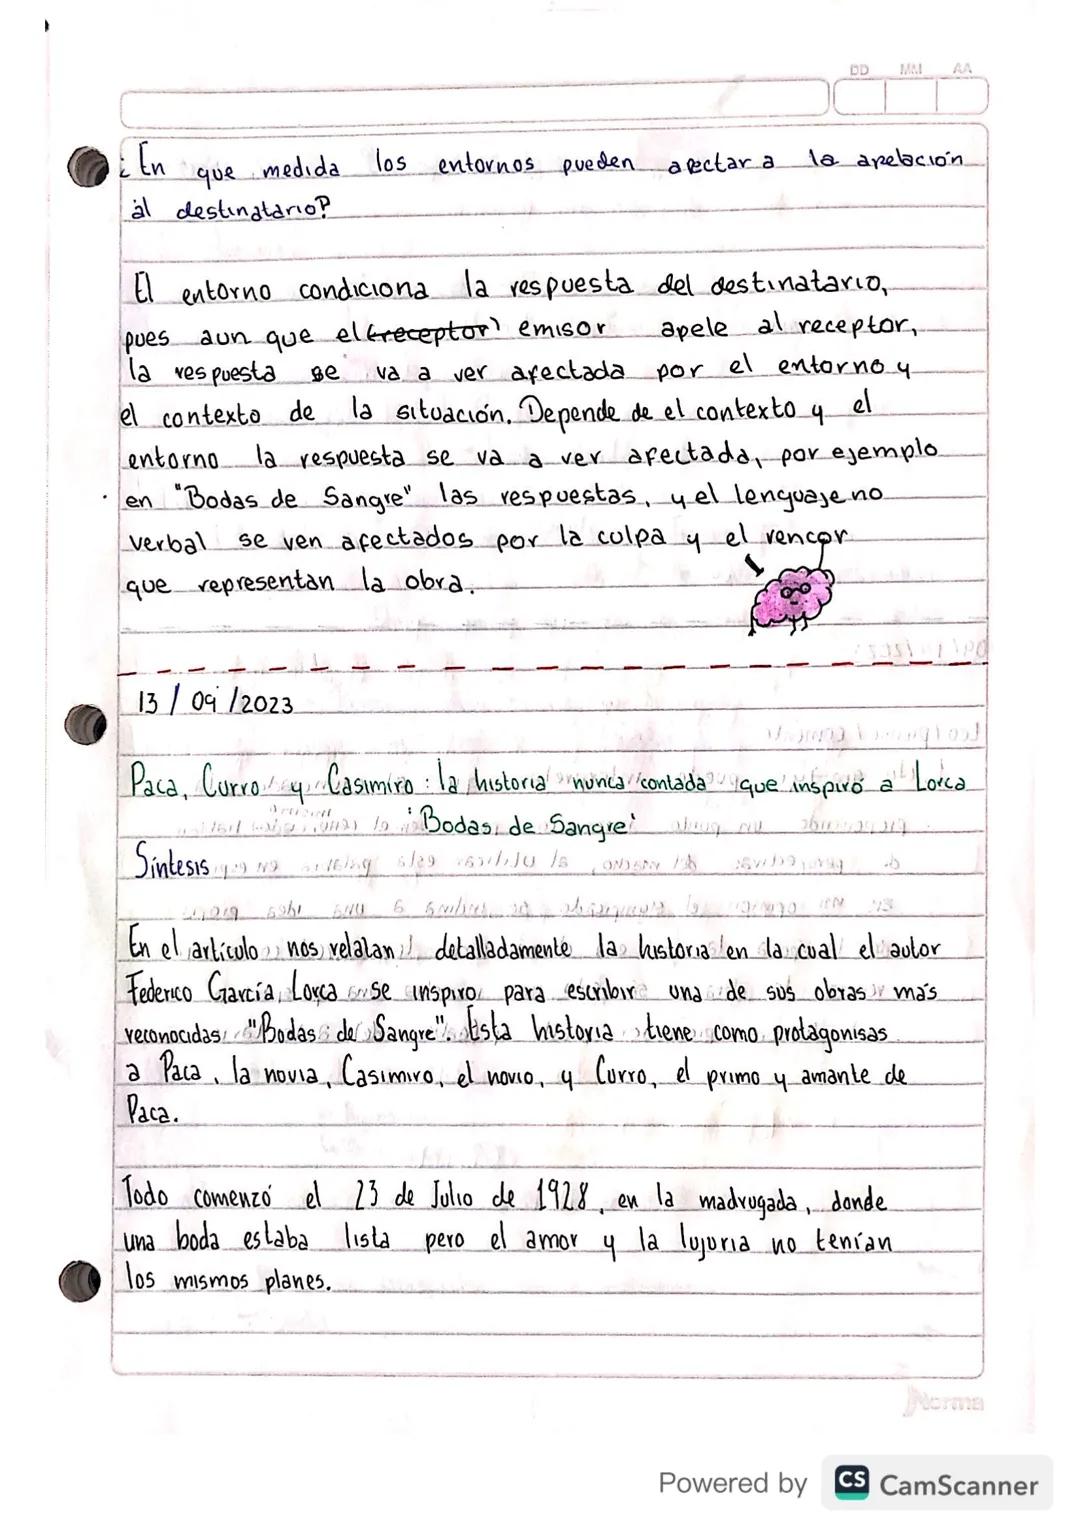 DD MM AA
¿En que medida los entornos pueden afectar a la apelación
al destinatario?
El entorno condiciona la respuesta del destinatario,
pues aun que el (receptor) emisor apele al receptor,
la respuesta se va a ver afectada por el entorno y
el contexto de la situación. Depende de el contexto y el
entorno la respuesta se va a ver afectada, por ejemplo
en "Bodas de Sangre" las respuestas, y el lenguaje no
verbal se ven afectados por la culpa y el rencor
que representan la obra.
13 / 09 /2023
Paca, Curro y Casimiro : la historia nunca contada que inspiró a Lorca
'Bodas de Sangre'
Síntesis
En el artículo nos relatan detalladamente la historia en la cual el autor
Federico García Lorca se inspiro para escribir una de sus obras más
reconocidas, "Bodas de Sangre". Esta historia tiene como protagonisas
a Paca, la novia, Casimiro, el novio, y Curro, el primo y amante de
Paca.
Todo comenzó el 23 de Julio de 1928, en la madrugada, donde
una boda estaba lista pero el amor y la lujuria no tenían
los mismos planes.
Norma
Powered by CS CamScanner